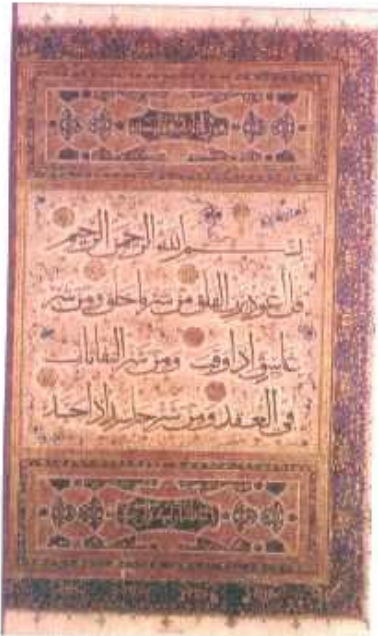 بسم الله الرحمن الرحيم
قل أعوذ برب الفلق من شر ما خلق ومن شر
غاسق اذا وقب ومن شر النفاثات
في العقد ومن شر حاسد اذا حسد